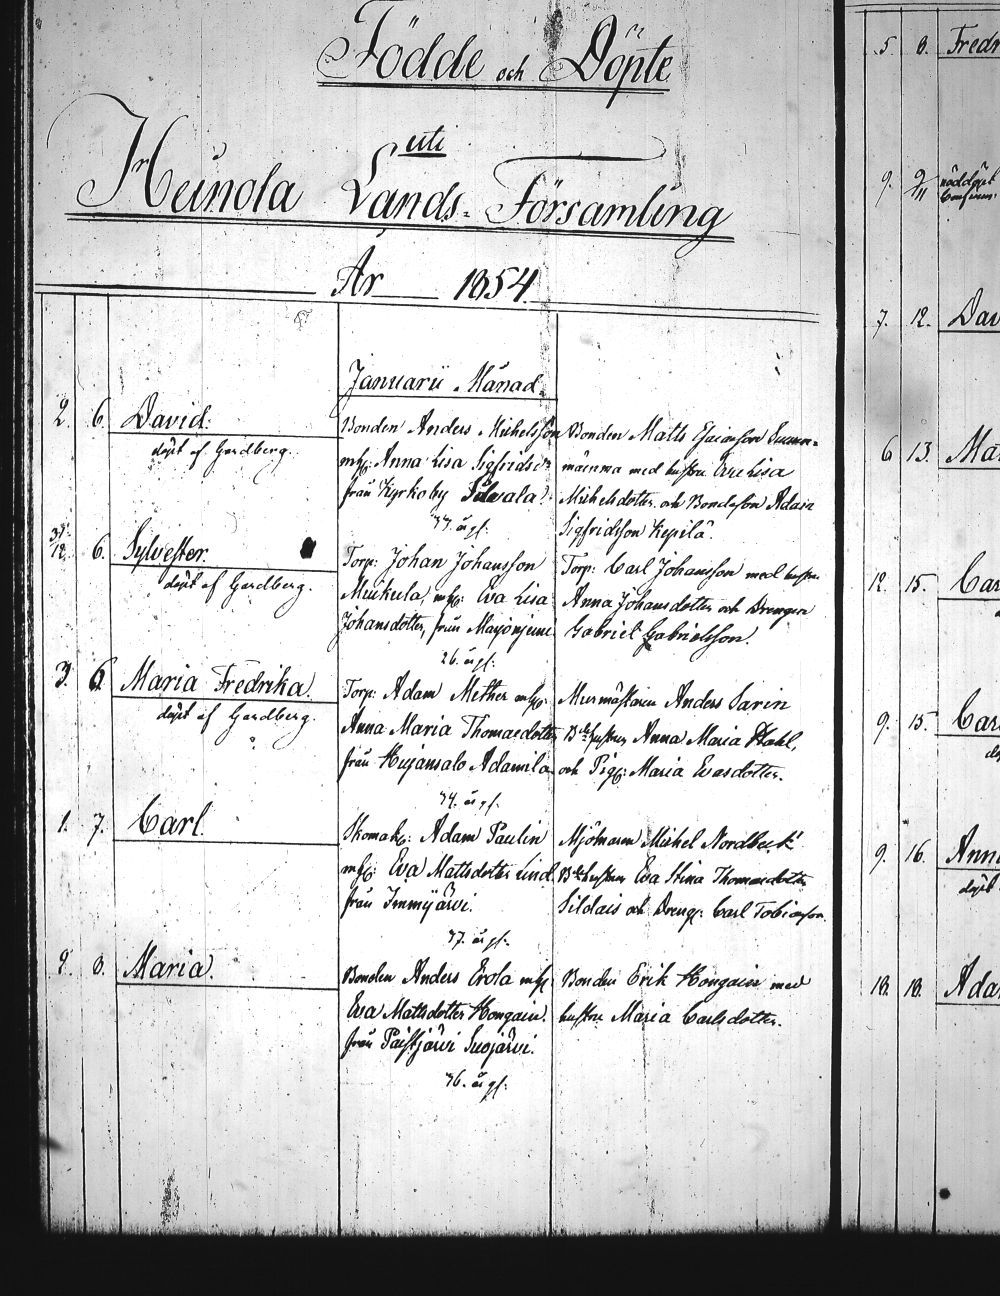 Födde och Döpte
uti
Heinola Lands-Församling
År 1854
Januarii Månad.
2. 6. David.
döpt af Gerdberg.
Bonden Anders Michelsson
mh: Anna Lisa Sigfridsdr
från Kyrkoby Silvala.
37. år gl.
Bonden Matts Esaiasson
med hustru Eva Lisa
Michelsdotter och Bondeson Adam
Sigfridsson Kepilä.
31/12. 6. Sylvester.
döpt af Gerdberg.
Torp: Johan Johansson
Muikula, mh: Eva Lisa
Johansdotter, från Marjoniemi
26. år gl.
Torp: Carl Johansson med hustru
Anna Johansdotter och Drengen
Gabriel Gabrielsson.
3. 6. Maria Fredrika.
döpt af Gerdberg.
Torp: Adam Mether mh:
Anna Maria Thomasdotter
från Hujansalo Adamila
34. år gl.
Murmästaren Anders Sarin
Bdehustrun Anna Maria Stahl,
och Pig: Maria Evasdotter.
1. 7. Carl.
Skomak: Adam Paulin
mh: Eva Mattsdotter Lind
från Immijärvi.
37. år gl.
Mjölnaren Michel Nordbeck
Bdehustrun Eva Stina Thomasdotter
och Dreng: Carl Tobiasson.
2. 8. Maria.
Bonden Anders Erola mh:
Eva Mattsdotter Hongain.
från Paistjärvi Suojärvi.
36. år gl.
Bonden Erik Hongain med
hustru Maria Carlsdotter.
5 8. Fredri
9. 9/11 nöddöpt
7. 12. Dav
6 13. Mar
12. 15. Car
9. 15. Car
9. 16. Anna
döpt
18. 18. Ada